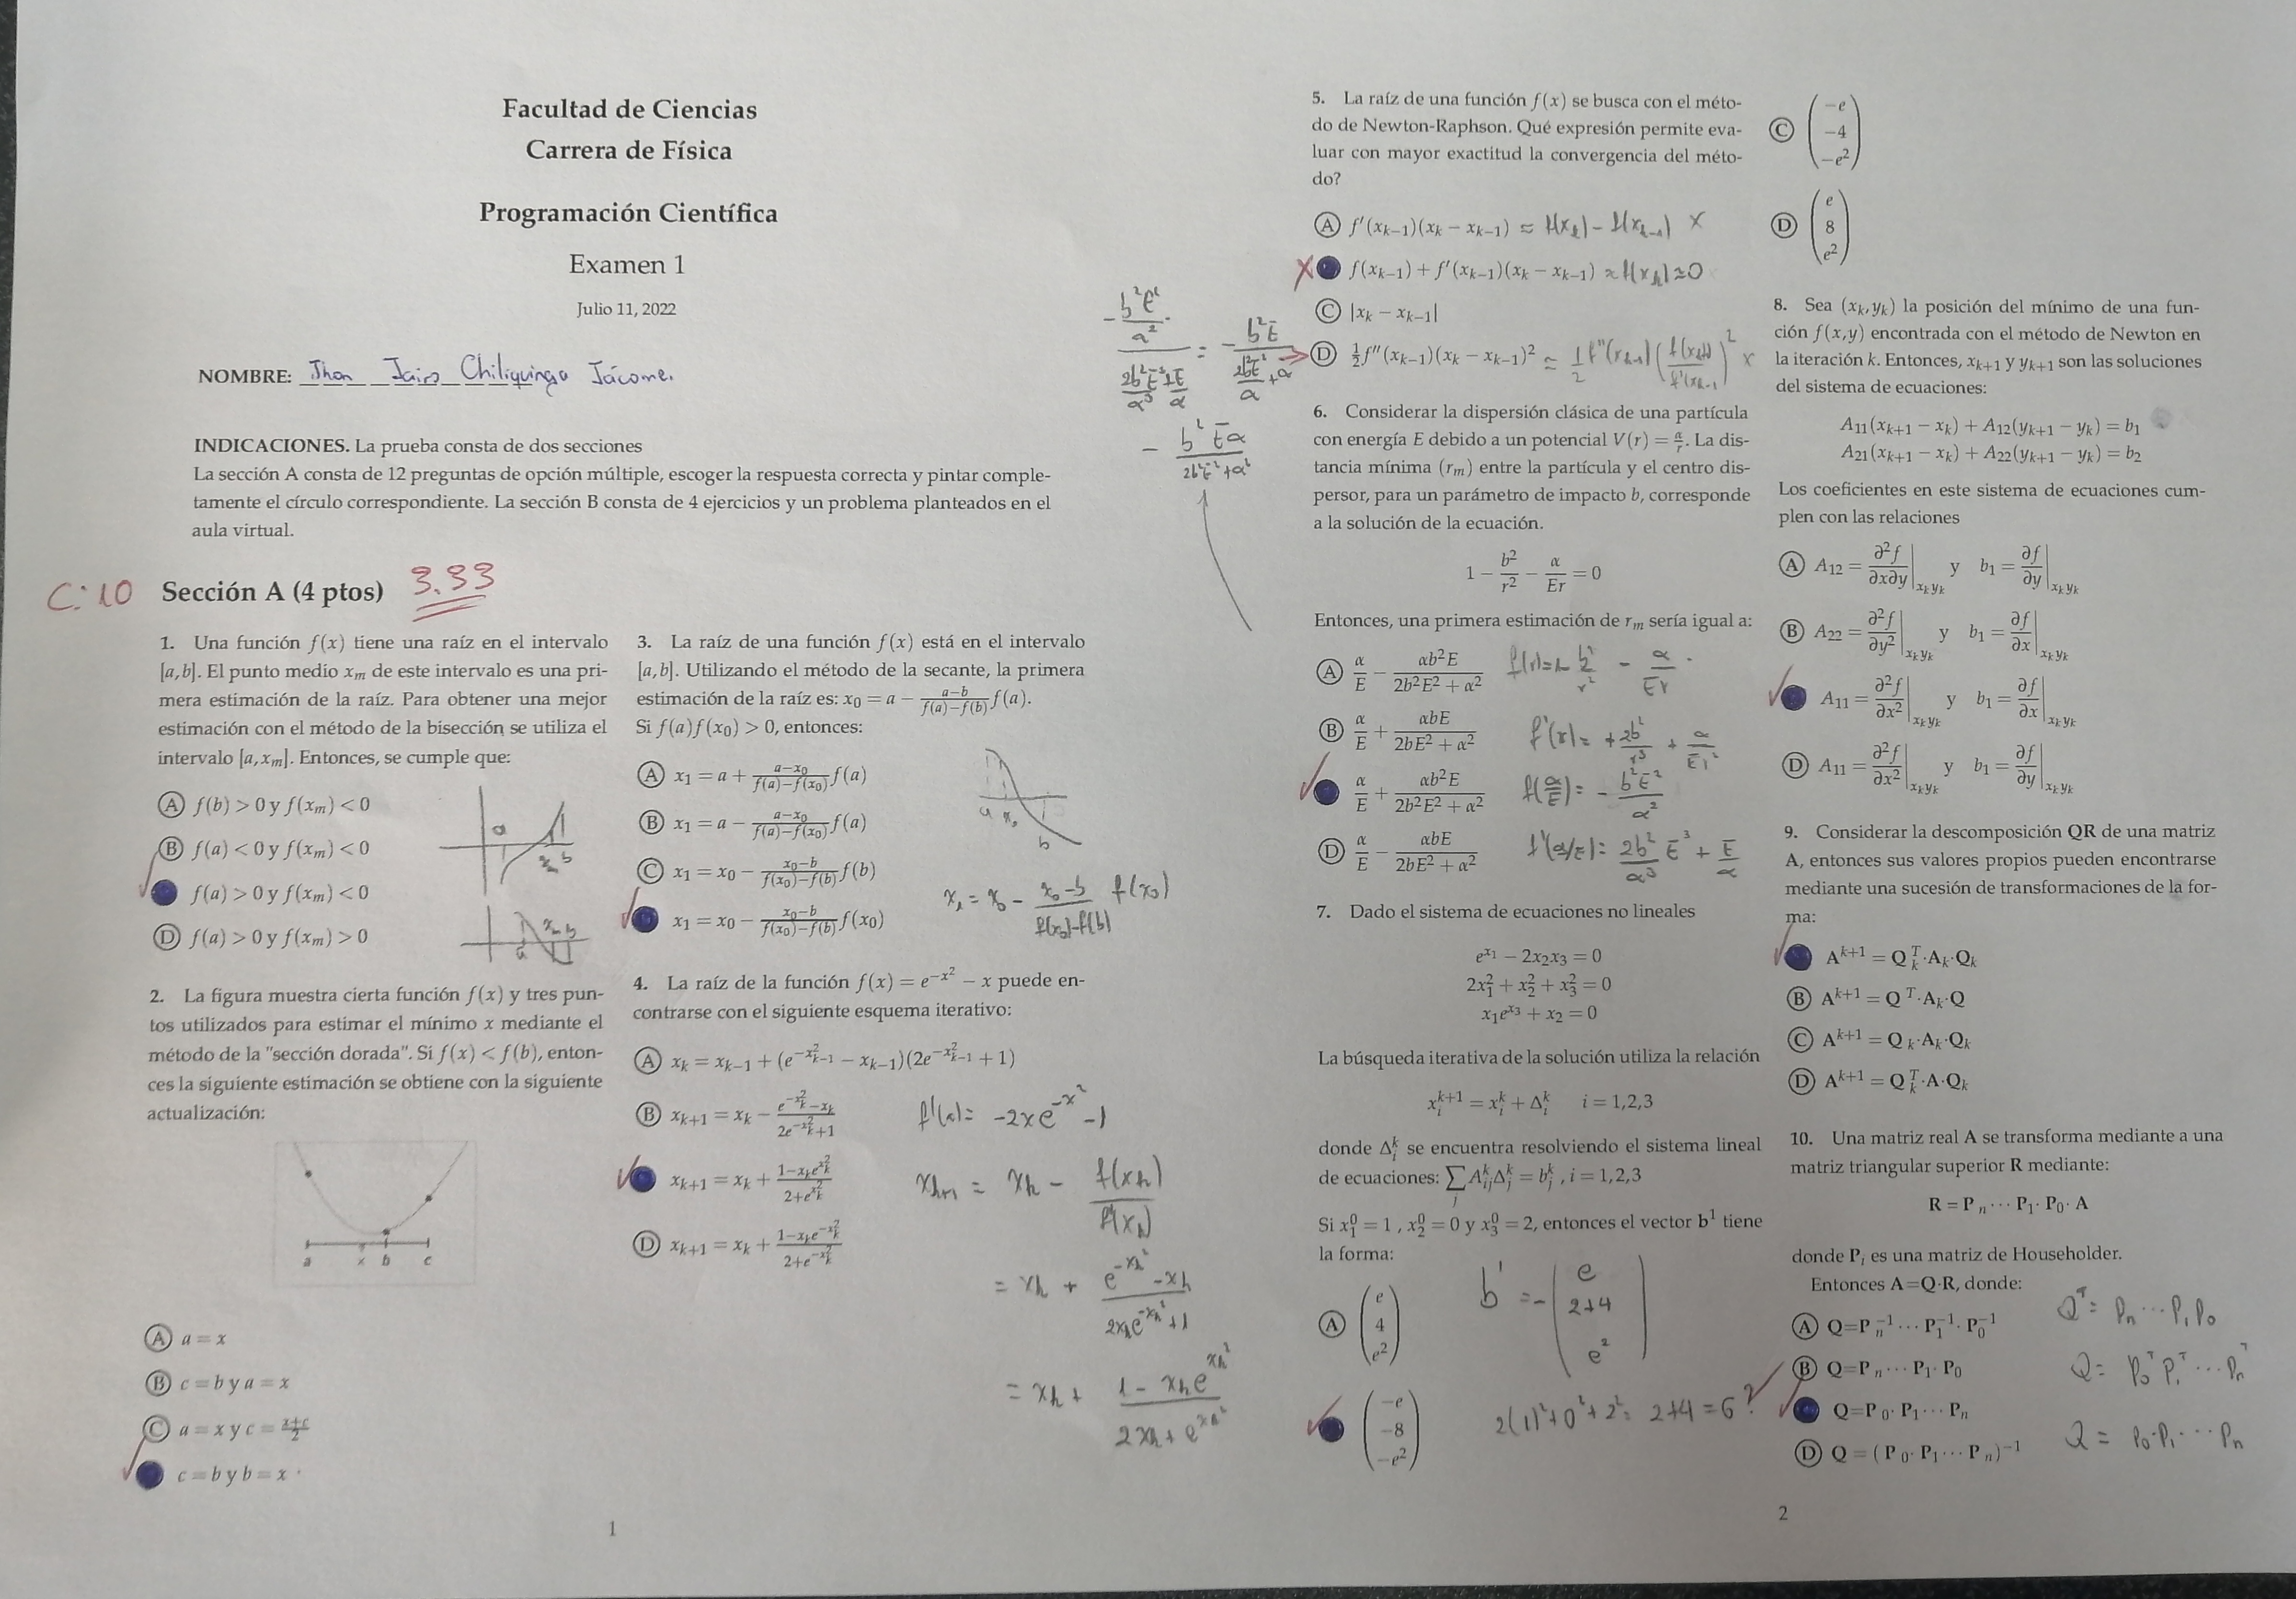 Facultad de Ciencias
Carrera de Física
Programación Científica
Examen 1
Julio 11, 2022
NOMBRE: Jhon Jairo Chiliquinga Jácome.
INDICACIONES. La prueba consta de dos secciones
La sección A consta de 12 preguntas de opción múltiple, escoger la respuesta correcta y pintar comple-
tamente el círculo correspondiente. La sección B consta de 4 ejercicios y un problema planteados en el
aula virtual.
C: 10 Sección A (4 ptos) 3.33
1. Una función f(x) tiene una raíz en el intervalo
[a,b]. El punto medio x_m de este intervalo es una pri-
mera estimación de la raíz. Para obtener una mejor
estimación con el método de la bisección se utiliza el
intervalo [a,x_m]. Entonces, se cumple que:
A f(b) > 0 y f(x_m) < 0
B f(a) < 0 y f(x_m) < 0
f(a) > 0 y f(x_m) < 0
D f(a) > 0 y f(x_m) > 0
a x_m b
a x_m b
2. La figura muestra cierta función f(x) y tres pun-
tos utilizados para estimar el mínimo x mediante el
método de la "sección dorada". Si f(x) < f(b), enton-
ces la siguiente estimación se obtiene con la siguiente
actualización:
a x b c
A a = x
B c = b y a = x
C a = x y c = (x+c)/2
c = b y b = x
3. La raíz de una función f(x) está en el intervalo
[a,b]. Utilizando el método de la secante, la primera
estimación de la raíz es: x_0 = a − (a−b)/(f(a)−f(b)) f(a).
Si f(a)f(x_0) > 0, entonces:
A x_1 = a + (a−x_0)/(f(a)−f(x_0)) f(a)
B x_1 = a − (a−x_0)/(f(a)−f(x_0)) f(a)
C x_1 = x_0 − (x_0−b)/(f(x_0)−f(b)) f(b)
x_1 = x_0 − (x_0−b)/(f(x_0)−f(b)) f(x_0)
a x_0 b
x_1 = x_0 − (x_0−b)/(f(x_0)−f(b)) f(x_0)
4. La raíz de la función f(x) = e^{−x²} − x puede en-
contrarse con el siguiente esquema iterativo:
A x_k = x_{k−1} + (e^{−x²_{k−1}} − x_{k−1})(2e^{−x²_{k−1}} + 1)
B x_{k+1} = x_k − (e^{−x²_k}−x_k)/(2e^{−x²_k}+1)
x_{k+1} = x_k + (1−x_k e^{x²_k})/(2+e^{x²_k})
D x_{k+1} = x_k + (1−x_k e^{−x²_k})/(2+e^{−x²_k})
f'(x) = −2xe^{−x²} −1
x_{k+1} = x_k − f(x_k)/f'(x_k)
= x_k + (e^{−x_k²} −x_k)/(2x_k e^{−x_k²}+1)
= x_k + (1 − x_k e^{x_k²})/(2x_k + e^{x_k²})
1
5. La raíz de una función f(x) se busca con el méto-
do de Newton-Raphson. Qué expresión permite eva-
luar con mayor exactitud la convergencia del méto-
do?
A f'(x_{k−1})(x_k − x_{k−1}) ≈ f(x_k) − f(x_{k−1}) X
X f(x_{k−1}) + f'(x_{k−1})(x_k − x_{k−1}) ≈ f(x_k) ≈ 0
C |x_k − x_{k−1}|
D ½f''(x_{k−1})(x_k − x_{k−1})² ≈ ½ f''(x_{k−1}) (f(x_{k−1})/f'(x_{k−1}))² X
−(b²E²/α²)/(2b²E³/α³ + E/α) = −b²E/(2b²E²/α + α)
− b²Eα/(2b²E²+α²)
6. Considerar la dispersión clásica de una partícula
con energía E debido a un potencial V(r) = α/r. La dis-
tancia mínima (r_m) entre la partícula y el centro dis-
persor, para un parámetro de impacto b, corresponde
a la solución de la ecuación.
1 − b²/r² − α/(Er) = 0
Entonces, una primera estimación de r_m sería igual a:
A α/E − αb²E/(2b²E² + α²)
B α/E + αbE/(2bE² + α²)
α/E + αb²E/(2b²E² + α²)
D α/E − αbE/(2bE² + α²)
f(r) = 1 − b²/r² − α/(Er)
f'(r) = +2b²/r³ + α/(Er²)
f(α/E) = − b²E²/α²
f'(α/E) = 2b²/α³ E³ + E/α
7. Dado el sistema de ecuaciones no lineales
e^{x_1} − 2x_2x_3 = 0
2x_1² + x_2² + x_3² = 0
x_1e^{x_3} + x_2 = 0
La búsqueda iterativa de la solución utiliza la relación
x_i^{k+1} = x_i^k + Δ_i^k i = 1,2,3
donde Δ_i^k se encuentra resolviendo el sistema lineal
de ecuaciones: ∑_j A_{ij}^k Δ_j^k = b_j^k , i = 1,2,3
Si x_1^0 = 1 , x_2^0 = 0 y x_3^0 = 2, entonces el vector b^1 tiene
la forma:
A (e, 4, e²)
(−e, −8, −e²)
b^1 = −(e, 2+4, e²)
2(1)²+0²+2² = 2+4 = 6?
C (−e, −4, −e²)
D (e, 8, e²)
8. Sea (x_k, y_k) la posición del mínimo de una fun-
ción f(x,y) encontrada con el método de Newton en
la iteración k. Entonces, x_{k+1} y y_{k+1} son las soluciones
del sistema de ecuaciones:
A_11(x_{k+1} − x_k) + A_12(y_{k+1} − y_k) = b_1
A_21(x_{k+1} − x_k) + A_22(y_{k+1} − y_k) = b_2
Los coeficientes en este sistema de ecuaciones cum-
plen con las relaciones
A A_12 = ∂²f/∂x∂y |_{x_k y_k} y b_1 = ∂f/∂y |_{x_k y_k}
B A_22 = ∂²f/∂y² |_{x_k y_k} y b_1 = ∂f/∂x |_{x_k y_k}
A_11 = ∂²f/∂x² |_{x_k y_k} y b_1 = ∂f/∂x |_{x_k y_k}
D A_11 = ∂²f/∂x² |_{x_k y_k} y b_1 = ∂f/∂y |_{x_k y_k}
9. Considerar la descomposición QR de una matriz
A, entonces sus valores propios pueden encontrarse
mediante una sucesión de transformaciones de la for-
ma:
A^{k+1} = Q_k^T·A_k·Q_k
B A^{k+1} = Q^T·A_k·Q
C A^{k+1} = Q_k·A_k·Q_k
D A^{k+1} = Q_k^T·A·Q_k
10. Una matriz real A se transforma mediante a una
matriz triangular superior R mediante:
R = P_n ··· P_1· P_0 · A
donde P_i es una matriz de Householder.
Entonces A=Q·R, donde:
A Q=P_n^{−1} ··· P_1^{−1}· P_0^{−1}
B Q=P_n ··· P_1· P_0
Q=P_0· P_1 ··· P_n
D Q = (P_0· P_1 ··· P_n)^{−1}
Q^T = P_n ··· P_1 P_0
Q = P_0^T P_1^T ··· P_n^T
Q = P_0·P_1 ··· P_n
2